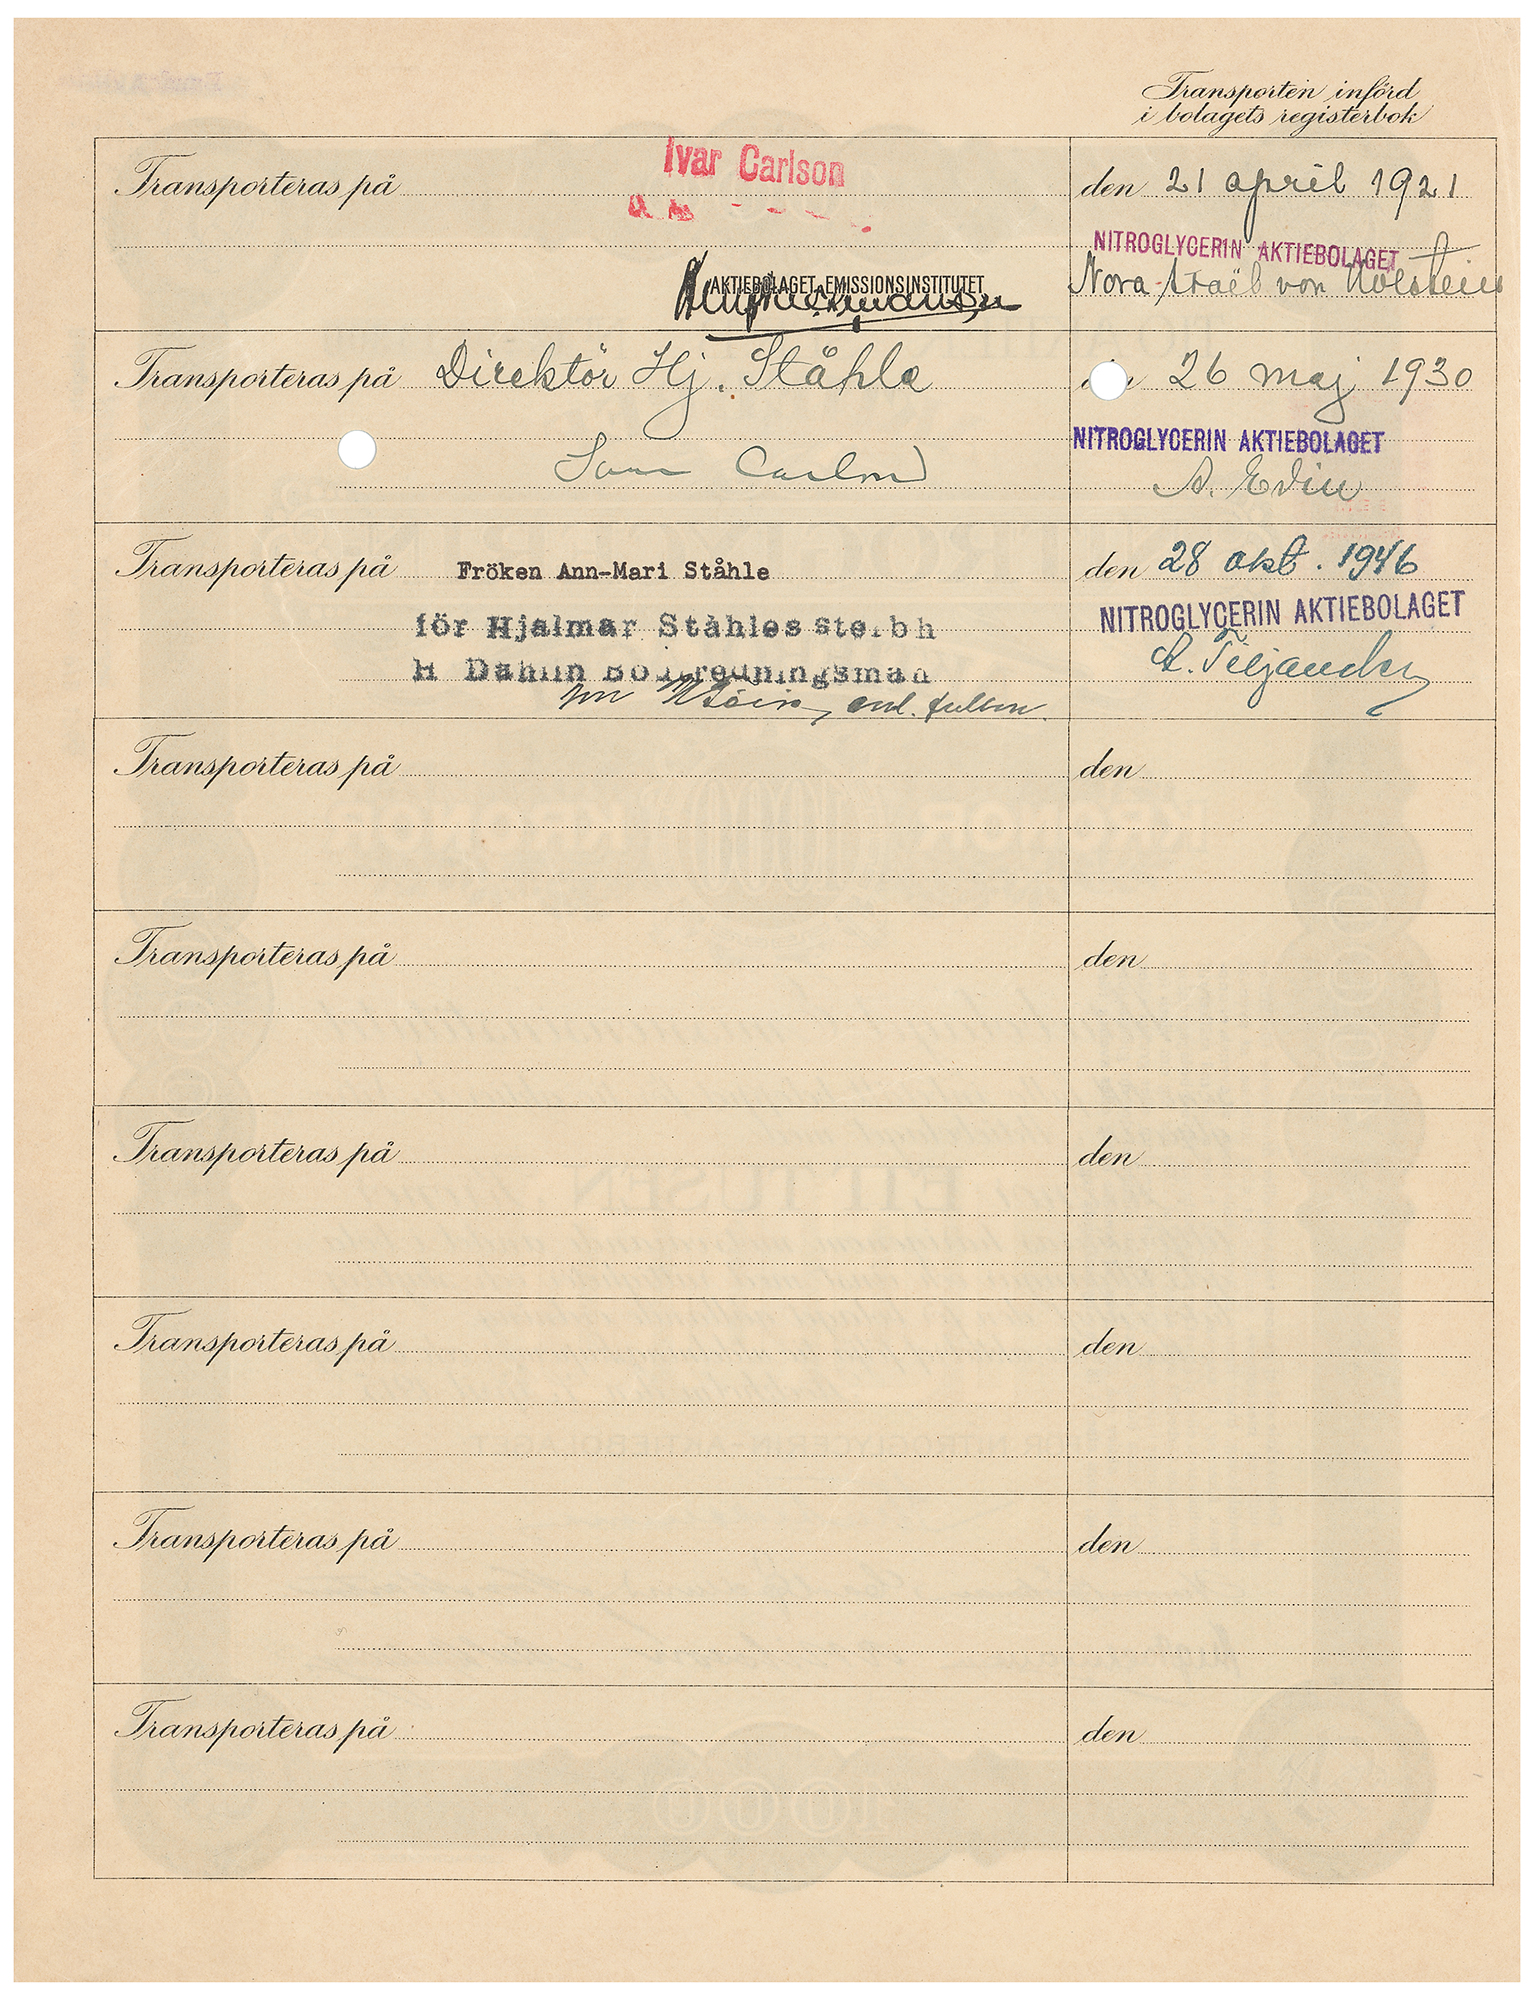 Transporten införd
i bolagets registerbok
Transporteras på Ivar Carlson
den 21 april 1921
NITROGLYCERIN AKTIEBOLAGET
AKTIEBOLAGET EMISSIONSINSTITUTET
Nora von Holstein
Transporteras på Direktör Hj. Ståhle
26 maj 1930
NITROGLYCERIN AKTIEBOLAGET
Ivar Carlson
A. Edin
Transporteras på Fröken Ann-Mari Ståhle
den 28 okt. 1946
för Hjalmar Ståhles sterbh
NITROGLYCERIN AKTIEBOLAGET
H Dahlin Boutredningsman
enl. fullm.
Transporteras på den
Transporteras på den
Transporteras på den
Transporteras på den
Transporteras på den
Transporteras på den